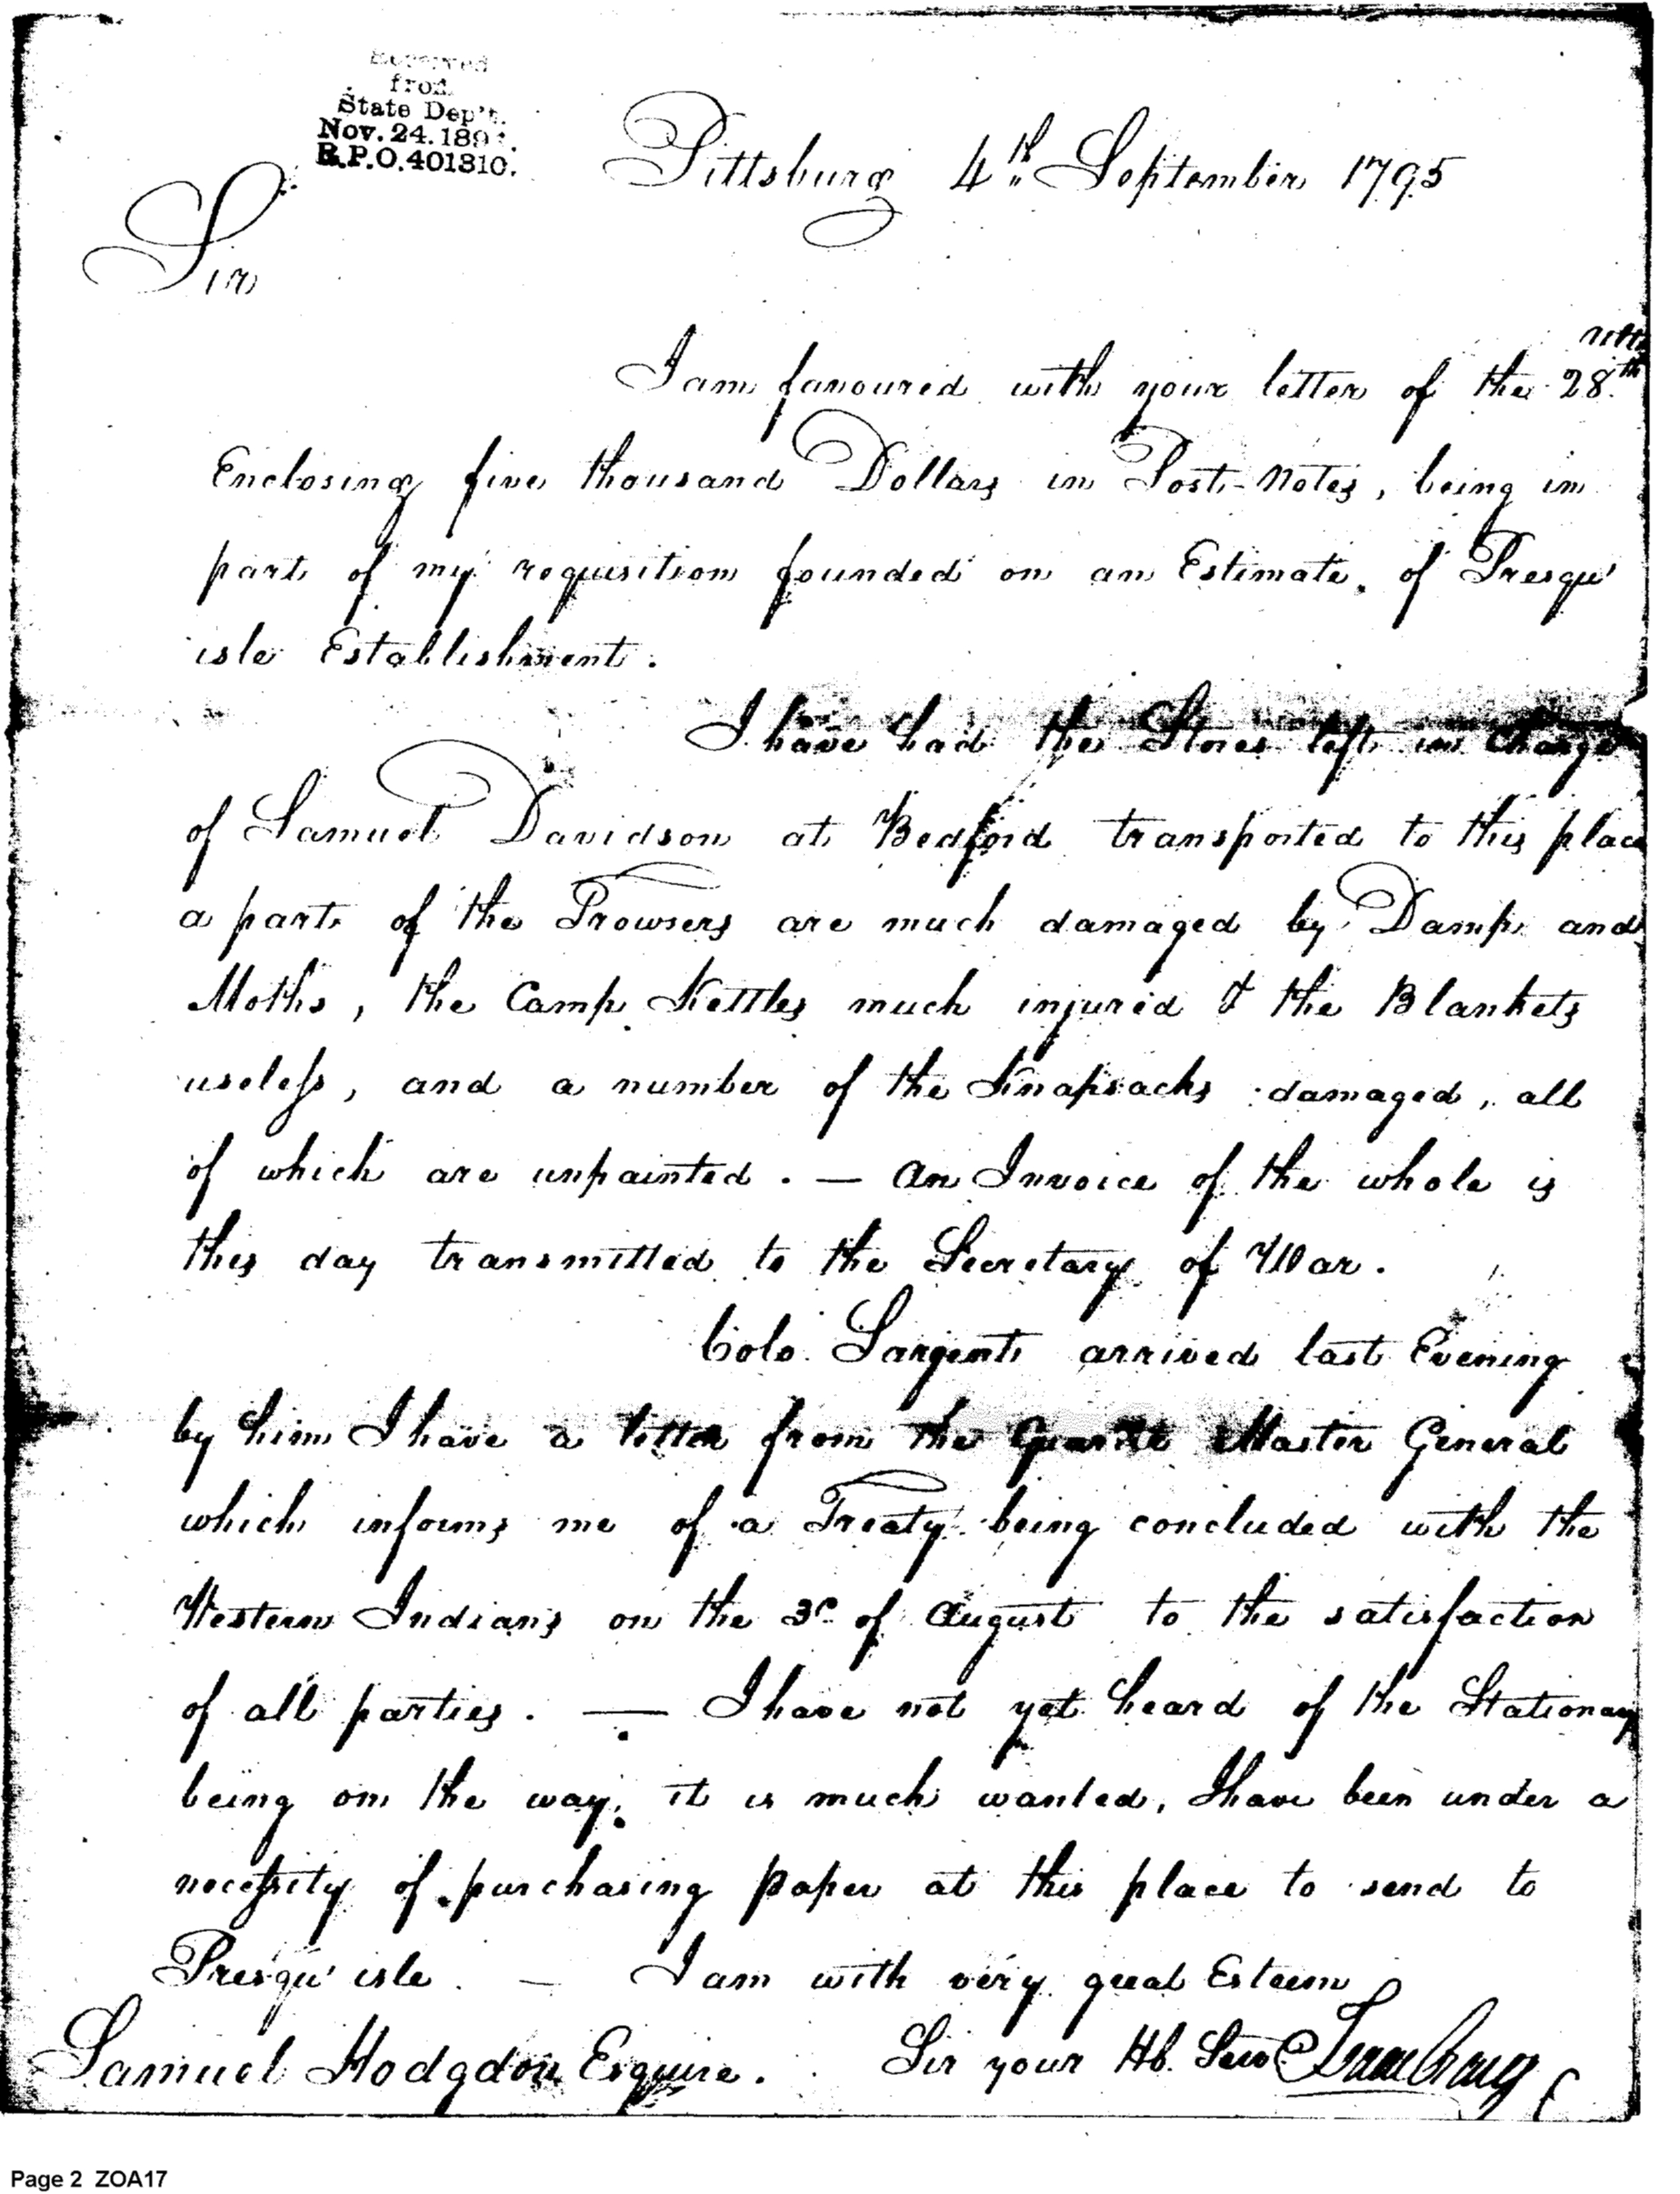 Received
from
State Dep't.
Nov. 24. 189
R.P.O. 401310.
Pittsburg 4th September 1795
Sir
ulto
I am favoured with your letter of the 28th
Enclosing five thousand Dollars in Post-Notes, being in
part of my requisition founded on an Estimate, of Presqu'
isle Establishment.
I have had the Stores left in Charge
of Samuel Davidson at Bedford transported to this place
a part of the Trowsers are much damaged by Damp and
Moths, the Camp Kettles much injured & the Blankets
useless, and a number of the Knapsacks damaged, all
of which are unpainted. — An Invoice of the whole is
this day transmitted to the Secretary of War.
Colo. Sargent arrived last Evening
by him I have a letter from the Quarter Master General
which informs me of a Treaty being concluded with the
Western Indians on the 3d of August to the satisfaction
of all parties. — I have not yet heard of the Stationary
being on the way, it is much wanted, I have been under a
necessity of purchasing paper at this place to send to
Presqu' isle. — I am with very great Esteem
Samuel Hodgdon Esquire. Sir your Hb. Serv Isaac Craig
Page 2 ZOA17